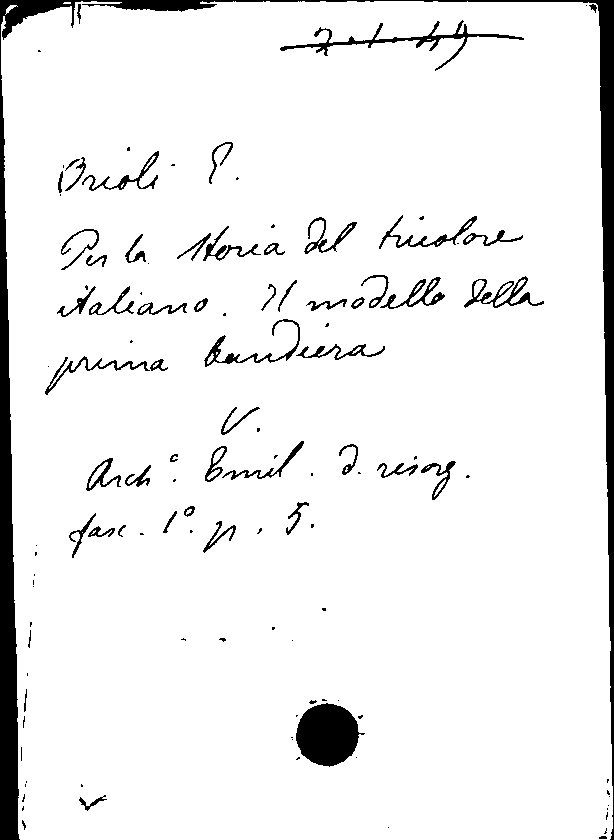 2.1.49
Orioli E.
Per la storia del tricolore
italiano. Il modello della
prima bandiera
V.
Arch°. Emil. d. risorg.
fasc. 1°. p. 5.